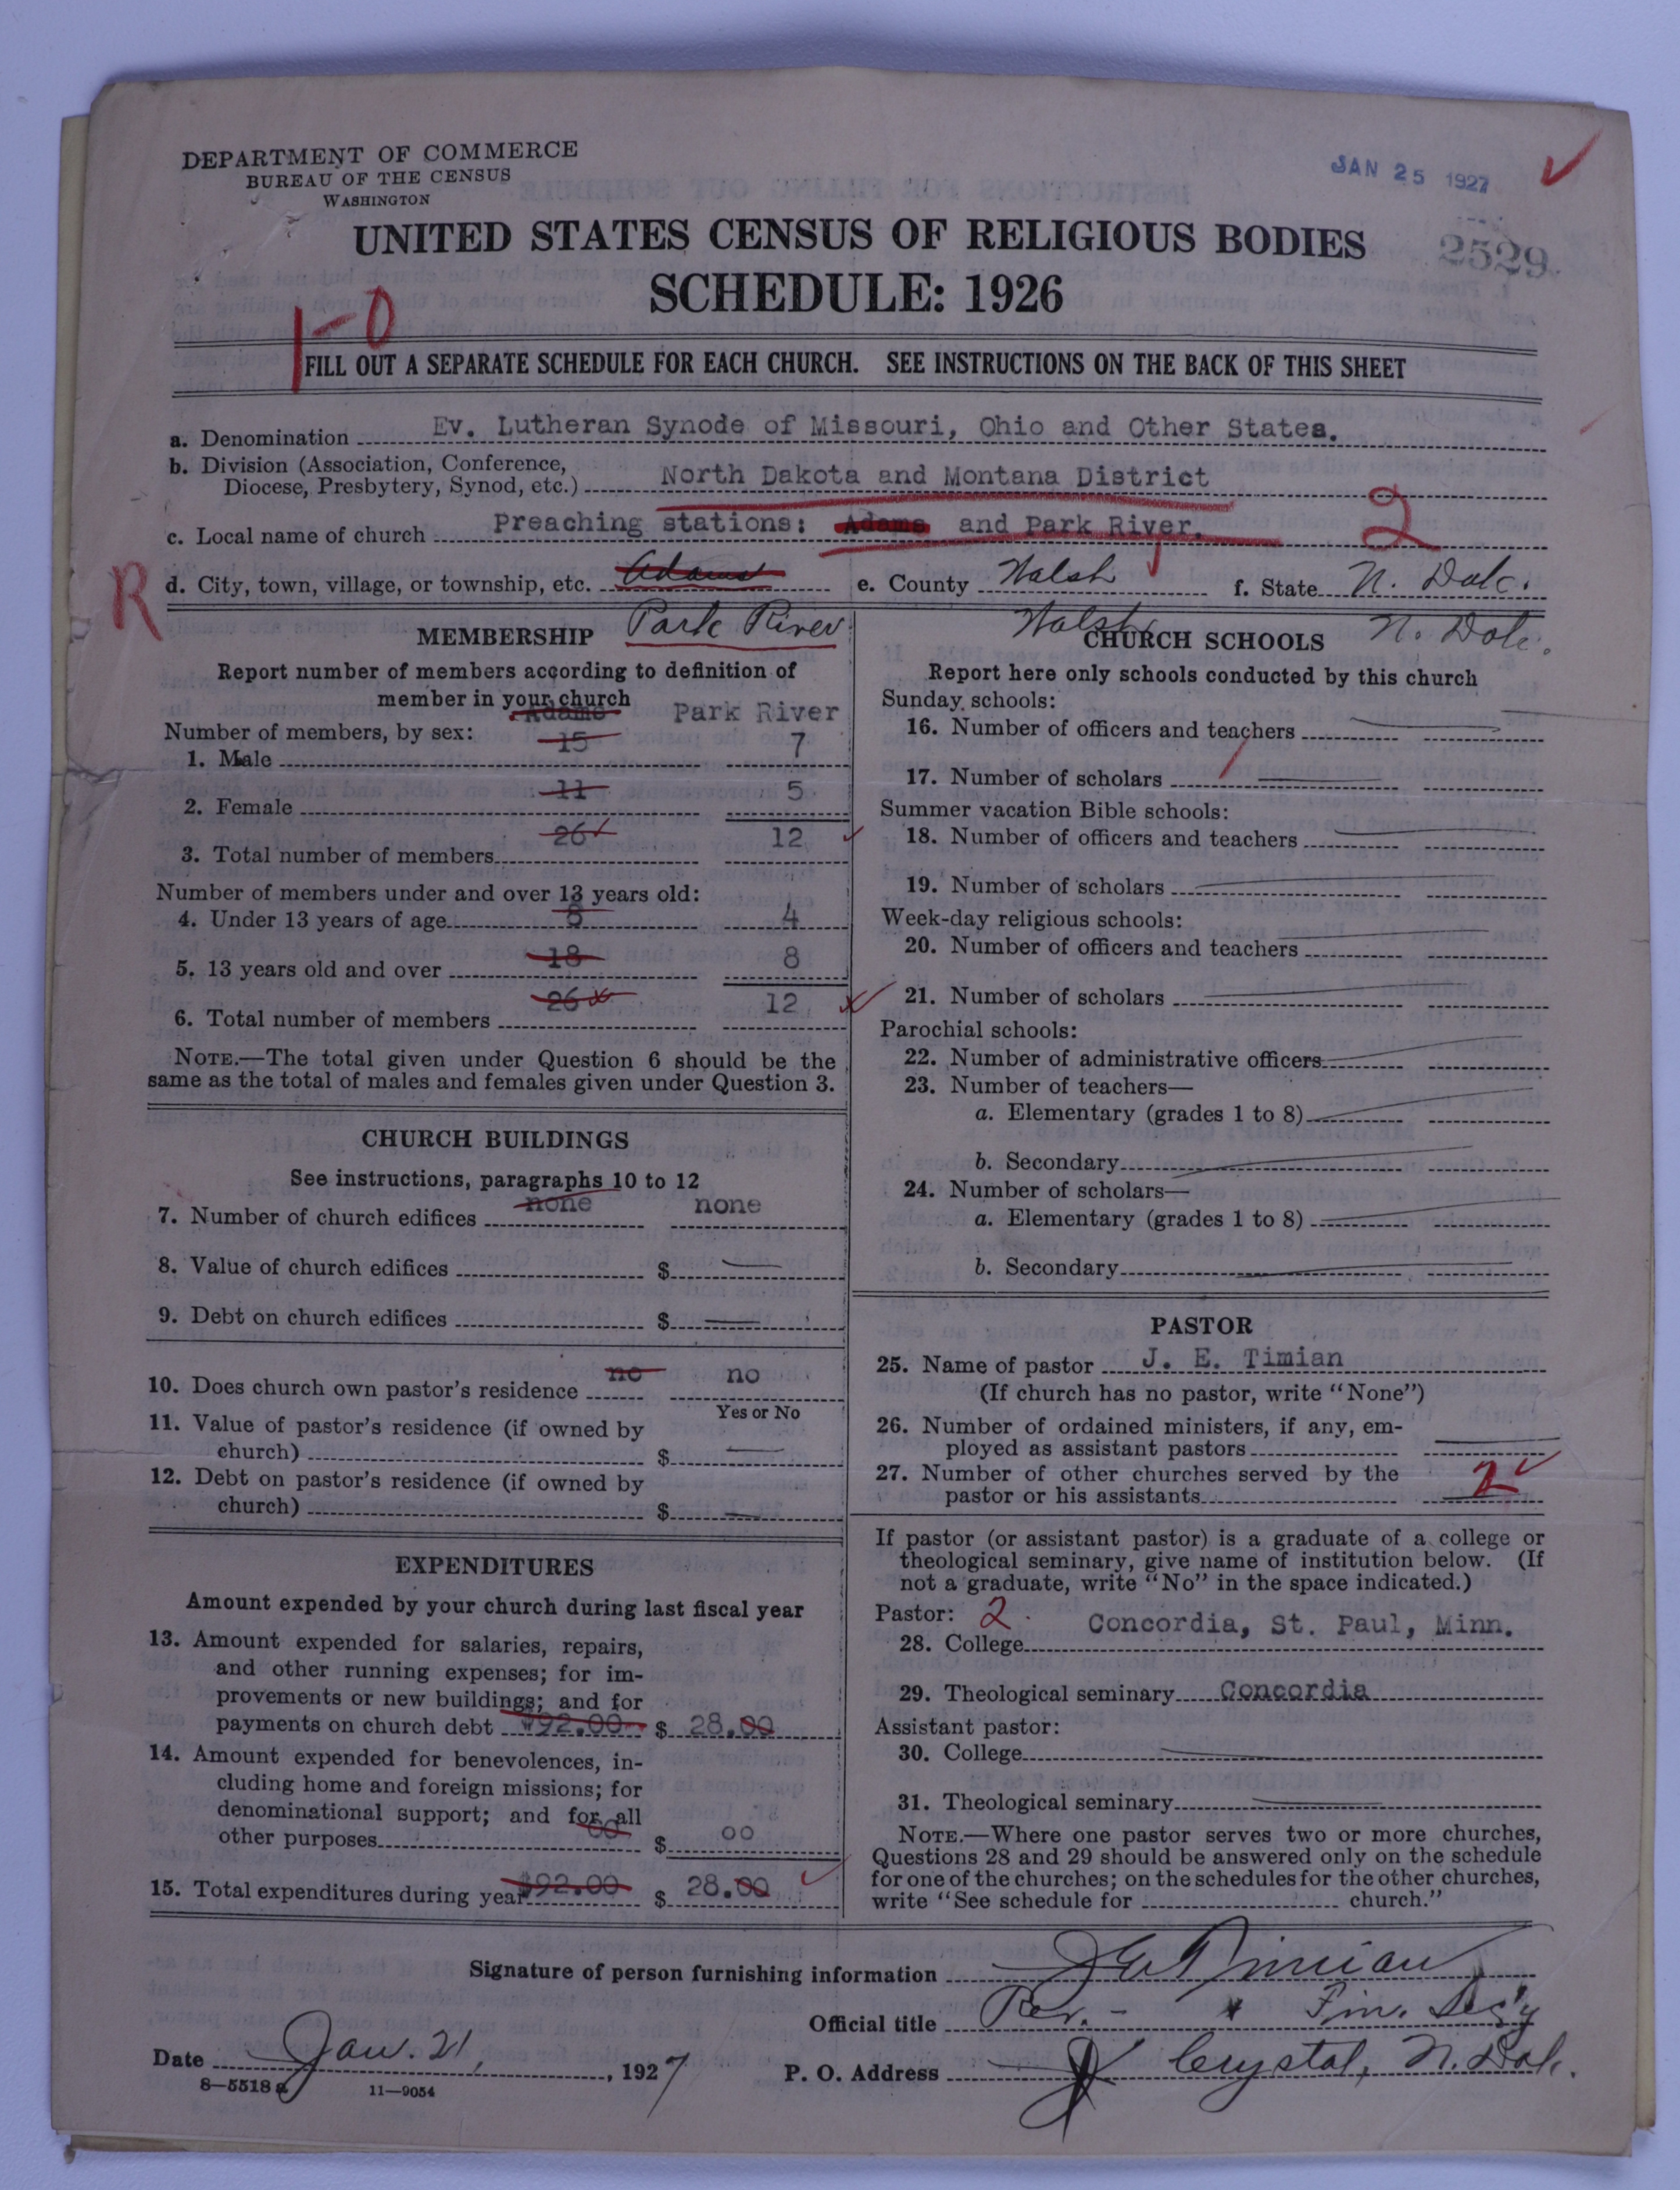 DEPARTMENT OF COMMERCE
BUREAU OF THE CENSUS
WASHINGTON
JAN 25 1927
UNITED STATES CENSUS OF RELIGIOUS BODIES
2529
SCHEDULE: 1926
1-0
FILL OUT A SEPARATE SCHEDULE FOR EACH CHURCH. SEE INSTRUCTIONS ON THE BACK OF THIS SHEET
a. Denomination Ev. Lutheran Synode of Missouri, Ohio and Other States.
b. Division (Association, Conference,
Diocese, Presbytery, Synod, etc.) North Dakota and Montana District
c. Local name of church Preaching stations: Adams and Park River. 2
R d. City, town, village, or township, etc. Adams e. County Walsh f. State N. Dak.
Park River Walsh N. Dak.
MEMBERSHIP
Report number of members according to definition of
member in your church
Adams Park River
Number of members, by sex:
1. Male 15 7
2. Female 11 5
3. Total number of members 26 12
Number of members under and over 13 years old:
4. Under 13 years of age 8 4
5. 13 years old and over 18 8
6. Total number of members 26 12
NOTE.—The total given under Question 6 should be the
same as the total of males and females given under Question 3.
CHURCH BUILDINGS
See instructions, paragraphs 10 to 12
7. Number of church edifices none none
8. Value of church edifices $
9. Debt on church edifices $
10. Does church own pastor's residence no no
Yes or No
11. Value of pastor's residence (if owned by
church) $
12. Debt on pastor's residence (if owned by
church) $
EXPENDITURES
Amount expended by your church during last fiscal year
13. Amount expended for salaries, repairs,
and other running expenses; for im-
provements or new buildings; and for
payments on church debt $92.00 $ 28.00
14. Amount expended for benevolences, in-
cluding home and foreign missions; for
denominational support; and for all
other purposes 00 $ 00
15. Total expenditures during year $92.00 $ 28.00
CHURCH SCHOOLS
Report here only schools conducted by this church
Sunday schools:
16. Number of officers and teachers
17. Number of scholars
Summer vacation Bible schools:
18. Number of officers and teachers
19. Number of scholars
Week-day religious schools:
20. Number of officers and teachers
21. Number of scholars
Parochial schools:
22. Number of administrative officers
23. Number of teachers—
a. Elementary (grades 1 to 8)
b. Secondary
24. Number of scholars—
a. Elementary (grades 1 to 8)
b. Secondary
PASTOR
25. Name of pastor J. E. Timian
(If church has no pastor, write "None")
26. Number of ordained ministers, if any, em-
ployed as assistant pastors
27. Number of other churches served by the
pastor or his assistants 2
If pastor (or assistant pastor) is a graduate of a college or
theological seminary, give name of institution below. (If
not a graduate, write "No" in the space indicated.)
Pastor: 2
28. College Concordia, St. Paul, Minn.
29. Theological seminary Concordia
Assistant pastor:
30. College
31. Theological seminary
NOTE.—Where one pastor serves two or more churches,
Questions 28 and 29 should be answered only on the schedule
for one of the churches; on the schedules for the other churches,
write "See schedule for church."
Signature of person furnishing information J E Timian
Official title Rev. - Fin. Sec'y
Date Jan. 21, 1927 P. O. Address Crystal, N. Dak.
8-5518 a 11-9054